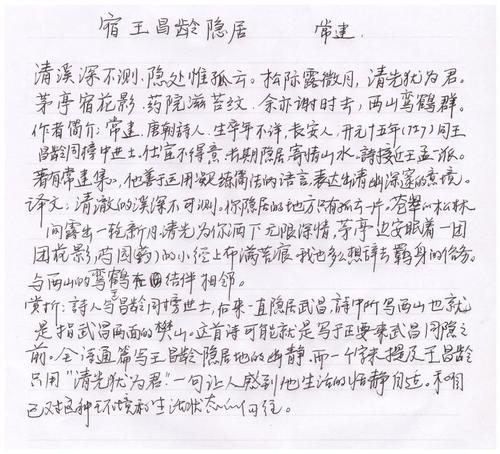 宿王昌龄隐居 常建.
清溪深不测.隐处惟孤云。松际露微月，清光犹为君。
茅亭宿花影.药院滋苔纹.余亦谢时去，西山鸾鹤群。
作者简介:常建.唐朝詩人.生卒年不详，长安人，开元十五年(727)同王
昌龄同榜中进士.仕宦不得意.长期隐居寄情山水.詩接近王孟一派。
著有常建集》，他善于运用凝练简洁的语言.表达出清幽深邃的意境。
译文:清澈的溪深不可测.你隐居的地方只有孤云一片,苍翠的松林
间露出一弯新月.清光为你洒下无限深情,茅亭边安眠着一团
团花影,药园(药)的小径上布满苔痕.我也多么想辞去羁身的俗务.
与西山的鸾鹤结伴相邻。
赏析:詩人与昌龄同榜进士,后来一直隐居武昌,詩中所写西山也就
是指武昌西面的樊山。这首诗可能就是写于正要来武昌同隐之
前。全诗通篇写王昌龄隐居地的幽静.而一个字未提及王昌龄
只用"清光犹为君"一句让人感到他生活的恬静自适。和自
己对这种环境和生活状态的向往。